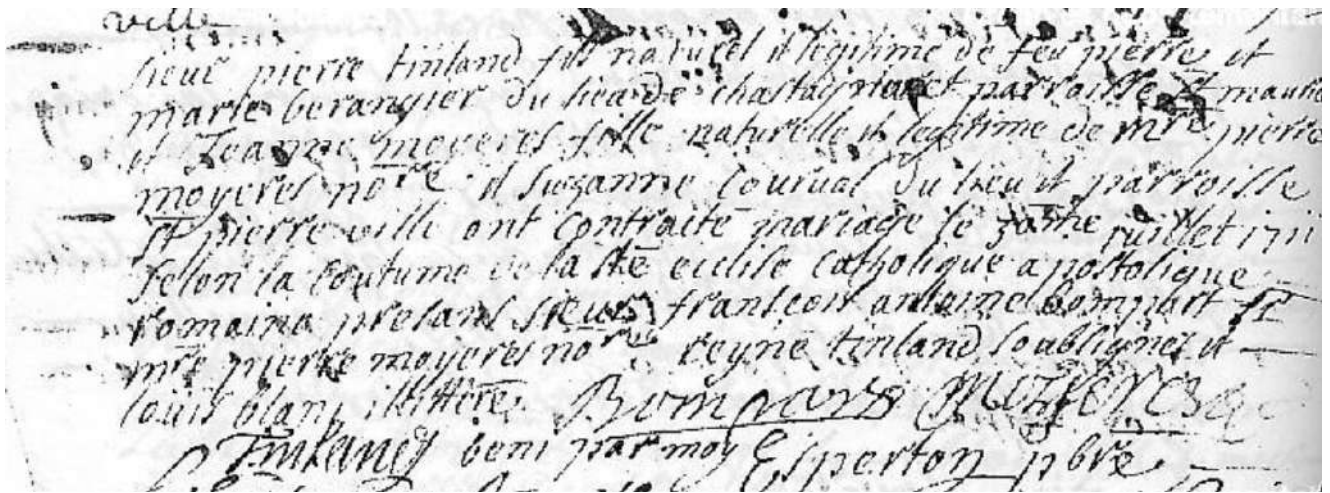 ville
sieur pierre tinland fils naturel et legitime de feu pierre et
marie berangier du lieu de chastagnaret parroisse st mauric
et Jeanne moyeres fille naturelle et legitime de mre pierre
moyeres nore et suzanne courual du lieu et parroisse
st pierre ville ont contraité mariage le juillet 1711
selon la coutume de la ste eclise catholique apostolique
romaina presans sieurs franscois antoine bompart
mre pierre moyeres nore reyne tinland soubsignes et
louis blanc illittere Bompars Moyeres
Tinland beni par moy Esperton pbre